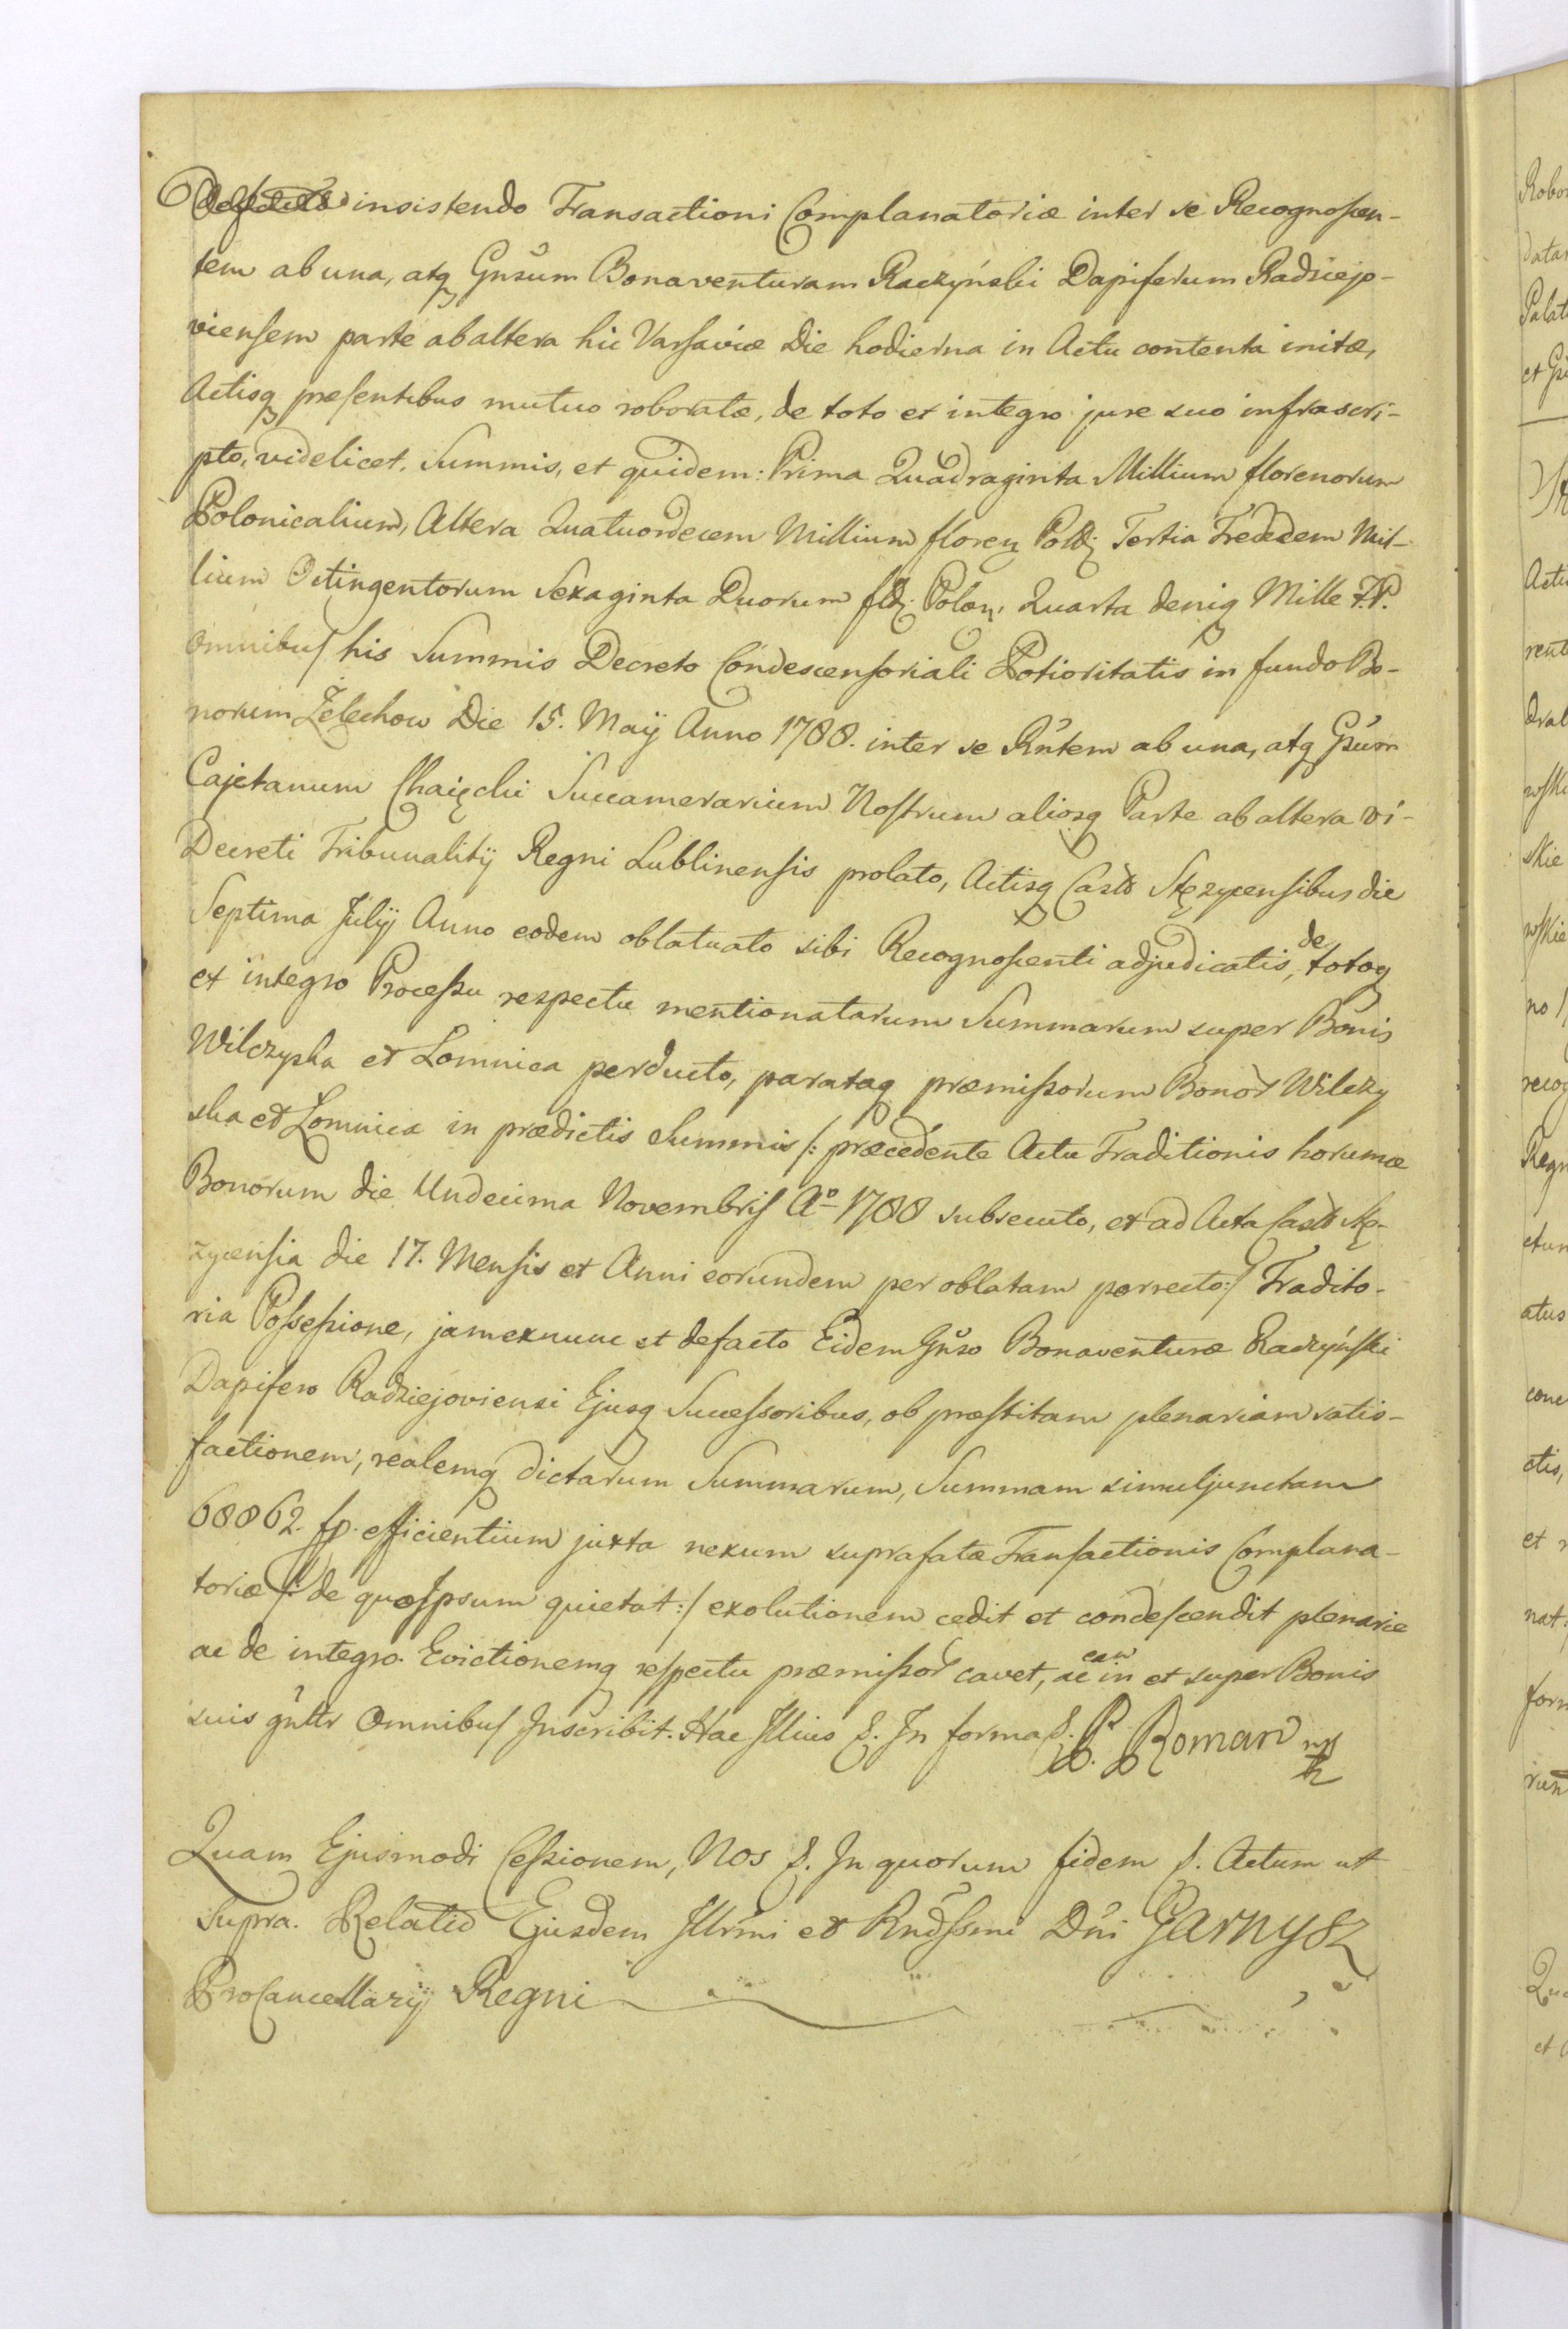 insistendo Transactioni Complanatoriæ inter se Recognoscen-
tem ab una, atq Gnsum Bonaventuram Raczyński Dapiferum Radziejo-
viensem parte ab altera hic Varsaviæ Die hodierna in Actu contenta initæ,
Actisq præsentibus mutuo roboratæ, de toto et integro jure suo infrascri-
pto, videlicet. Summis, et quidem: Prima Quadraginta Millium florenorum
Polonicalium, Altera Quatuordecem Millium floren Poldz Tertia Tredecem Mil-
lium Octingentorum Sexaginta Duorum fldz. Polon, Quarta deniq Mille F.P.
Omnibus his Summis Decreto Condescensoriali Potioritatis in fundo Bo-
norum Żelechow Die 15. Maÿ Anno 1788. inter se Rntem ab una, atq Gsum
Cajetanum Succamerarium Nostrum aliosq Parte ab altera vi-
Decreti Tribunalitÿ Regni Lublinensis prolato, Actisq Castr Stęzycensibus die
Septima Julÿ Anno eodem oblatuato sibi Recognoscenti adjudicatis, de totoq
et integro Processu respectu mentionatarum Summarum super Bonis
Wilczyska et Lomnica perducto, parataq præmissorum Bonor Wilczy
ska et Lomnica in prædictis Summis /: præcedente Actu Traditionis horumce
Bonorum die Undecima Novembris Ao 1788 subsecuto, et ad Acta Castr Stę-
zycensia die 17. Mensis et Anni eorundem per oblatam porrecto:/ Tradito-
ria Possessione, jamexnunc et defacto Eidem Gnso Bonaventuræ Raczyński
Dapifero Radziejoviensi Ejusq Successoribus, ob præstitam plenariam satis-
factionem, realemq dictarum Summarum, Summam simuljunctam
68862. fp. efficientium juxta nexum suprafatæ Transactionis Complana-
toriæ /: de quo Ipsum quietat:/ exolutionem cedit et condescendit plenarie
ac de integro. Evictionemq respectu præmissor cavet, ac eam in et super Bonis
suis gnltr Omnibus Inscribit. Hac Illius S. In forma S. P. Roman mp
Quam Ejusmodi Cessionem, Nos S. In quorum fidem S. Actum ut
Supra. Relatio Ejusdem Illrmi et Rndssmi Dni Garnysz
ProCancellarÿ Regni